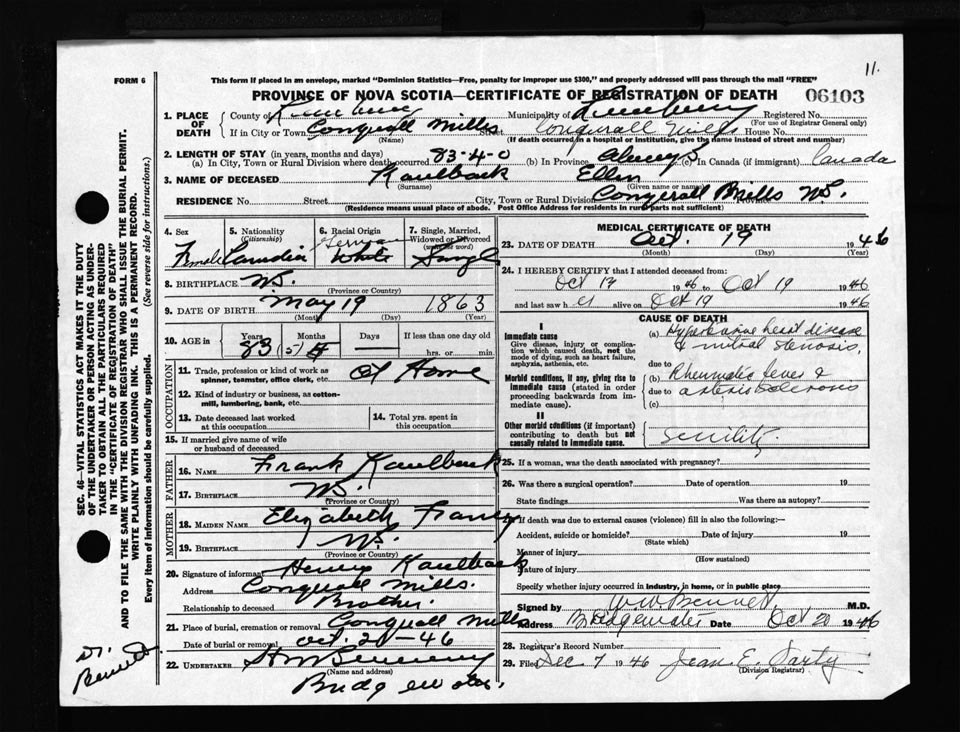 11.
FORM 6
This form if placed in an envelope, marked "Dominion Statistics—Free, penalty for improper use $300," and properly addressed will pass through the mail "FREE"
PROVINCE OF NOVA SCOTIA—CERTIFICATE OF REGISTRATION OF DEATH
06103
1. PLACE OF DEATH
County of Lunenburg Municipality of Lunenburg Registered No.
(For use of Registrar General only)
If in City or Town Conquerall Mills Street Conquerall Mills House No.
(Name) (If death occurred in a hospital or institution, give the name instead of street and number)
2. LENGTH OF STAY (in years, months and days)
(a) In City, Town or Rural Division where death occurred 83-4-0 (b) In Province Always (c) In Canada (if immigrant) Canada
3. NAME OF DECEASED Kaulback Ellen
(Surname) (Given name or names)
RESIDENCE No. Street City, Town or Rural Division Conquerall Mills NS.
(Residence means usual place of abode. Post Office Address for residents in rural parts not sufficient)
4. Sex Female
5. Nationality (Citizenship) Canadian
6. Racial Origin German White
7. Single, Married, Widowed or Divorced (write the word) Single
8. BIRTHPLACE NS.
(Province or Country)
9. DATE OF BIRTH May 19 1863
(Month) (Day) (Year)
10. AGE in Years Months Days If less than one day
83 (5) hrs. or min.
OCCUPATION
11. Trade, profession or kind of work as spinner, teamster, office clerk, etc. At Home
12. Kind of industry or business, as cotton-mill, lumbering, bank, etc.
13. Date deceased last worked at this occupation
14. Total yrs. spent in this occupation
15. If married give name of wife or husband of deceased
FATHER
16. NAME Frank Kaulback
17. BIRTHPLACE NS.
(Province or Country)
MOTHER
18. MAIDEN NAME Elizabeth
19. BIRTHPLACE NS.
(Province or Country)
20. Signature of informant Henry Kaulback
Address Conquerall Mills.
Relationship to deceased Brother.
21. Place of burial, cremation or removal Conquerall Mills
Date of burial or removal Oct. 21-46
22. UNDERTAKER
(Name and address)
Bridgewater.
MEDICAL CERTIFICATE OF DEATH
23. DATE OF DEATH Oct. 19 1946
(Month) (Day) (Year)
24. I HEREBY CERTIFY that I attended deceased from:
Oct 17 1946 to Oct 19 1946
and last saw h er alive on Oct 19 1946
CAUSE OF DEATH
I
Immediate cause
Give disease, injury or complication which caused death, not the mode of dying, such as heart failure, asphyxia, asthenia, etc.
(a) heart disease
& mitral stenosis.
due to
Morbid conditions, if any, giving rise to immediate cause (stated in order proceeding backwards from immediate cause).
(b) Rheumatic fever &
due to arteriosclerosis
(c)
II
Other morbid conditions (if important) contributing to death but not causally related to immediate cause.
Senility.
25. If a woman, was the death associated with pregnancy?
26. Was there a surgical operation? Date of operation 19
State findings Was there an autopsy?
27. If death was due to external causes (violence) fill in also the following:—
Accident, suicide or homicide? Date of injury 19
(State which)
Manner of injury
(How sustained)
Nature of injury
Specify whether injury occurred in industry, in home, or in public place
Signed by W Bennett M.D.
Address Bridgewater Date Oct 20 1946
28. Registrar's Record Number
29. Filed Dec 7 1946 Jean E. Sarty
(Division Registrar)
SEC. 46—VITAL STATISTICS ACT MAKES IT THE DUTY
OF THE UNDERTAKER OR PERSON ACTING AS UNDERTAKER TO OBTAIN ALL THE PARTICULARS REQUIRED
IN THE "CERTIFICATE OF REGISTRATION OF DEATH"
AND TO FILE THE SAME WITH THE DIVISION REGISTRAR WHO SHALL ISSUE THE BURIAL PERMIT.
WRITE PLAINLY WITH UNFADING INK. THIS IS A PERMANENT RECORD.
Every item of information should be carefully supplied. (See reverse side for instructions.)
Dr.
Bennett